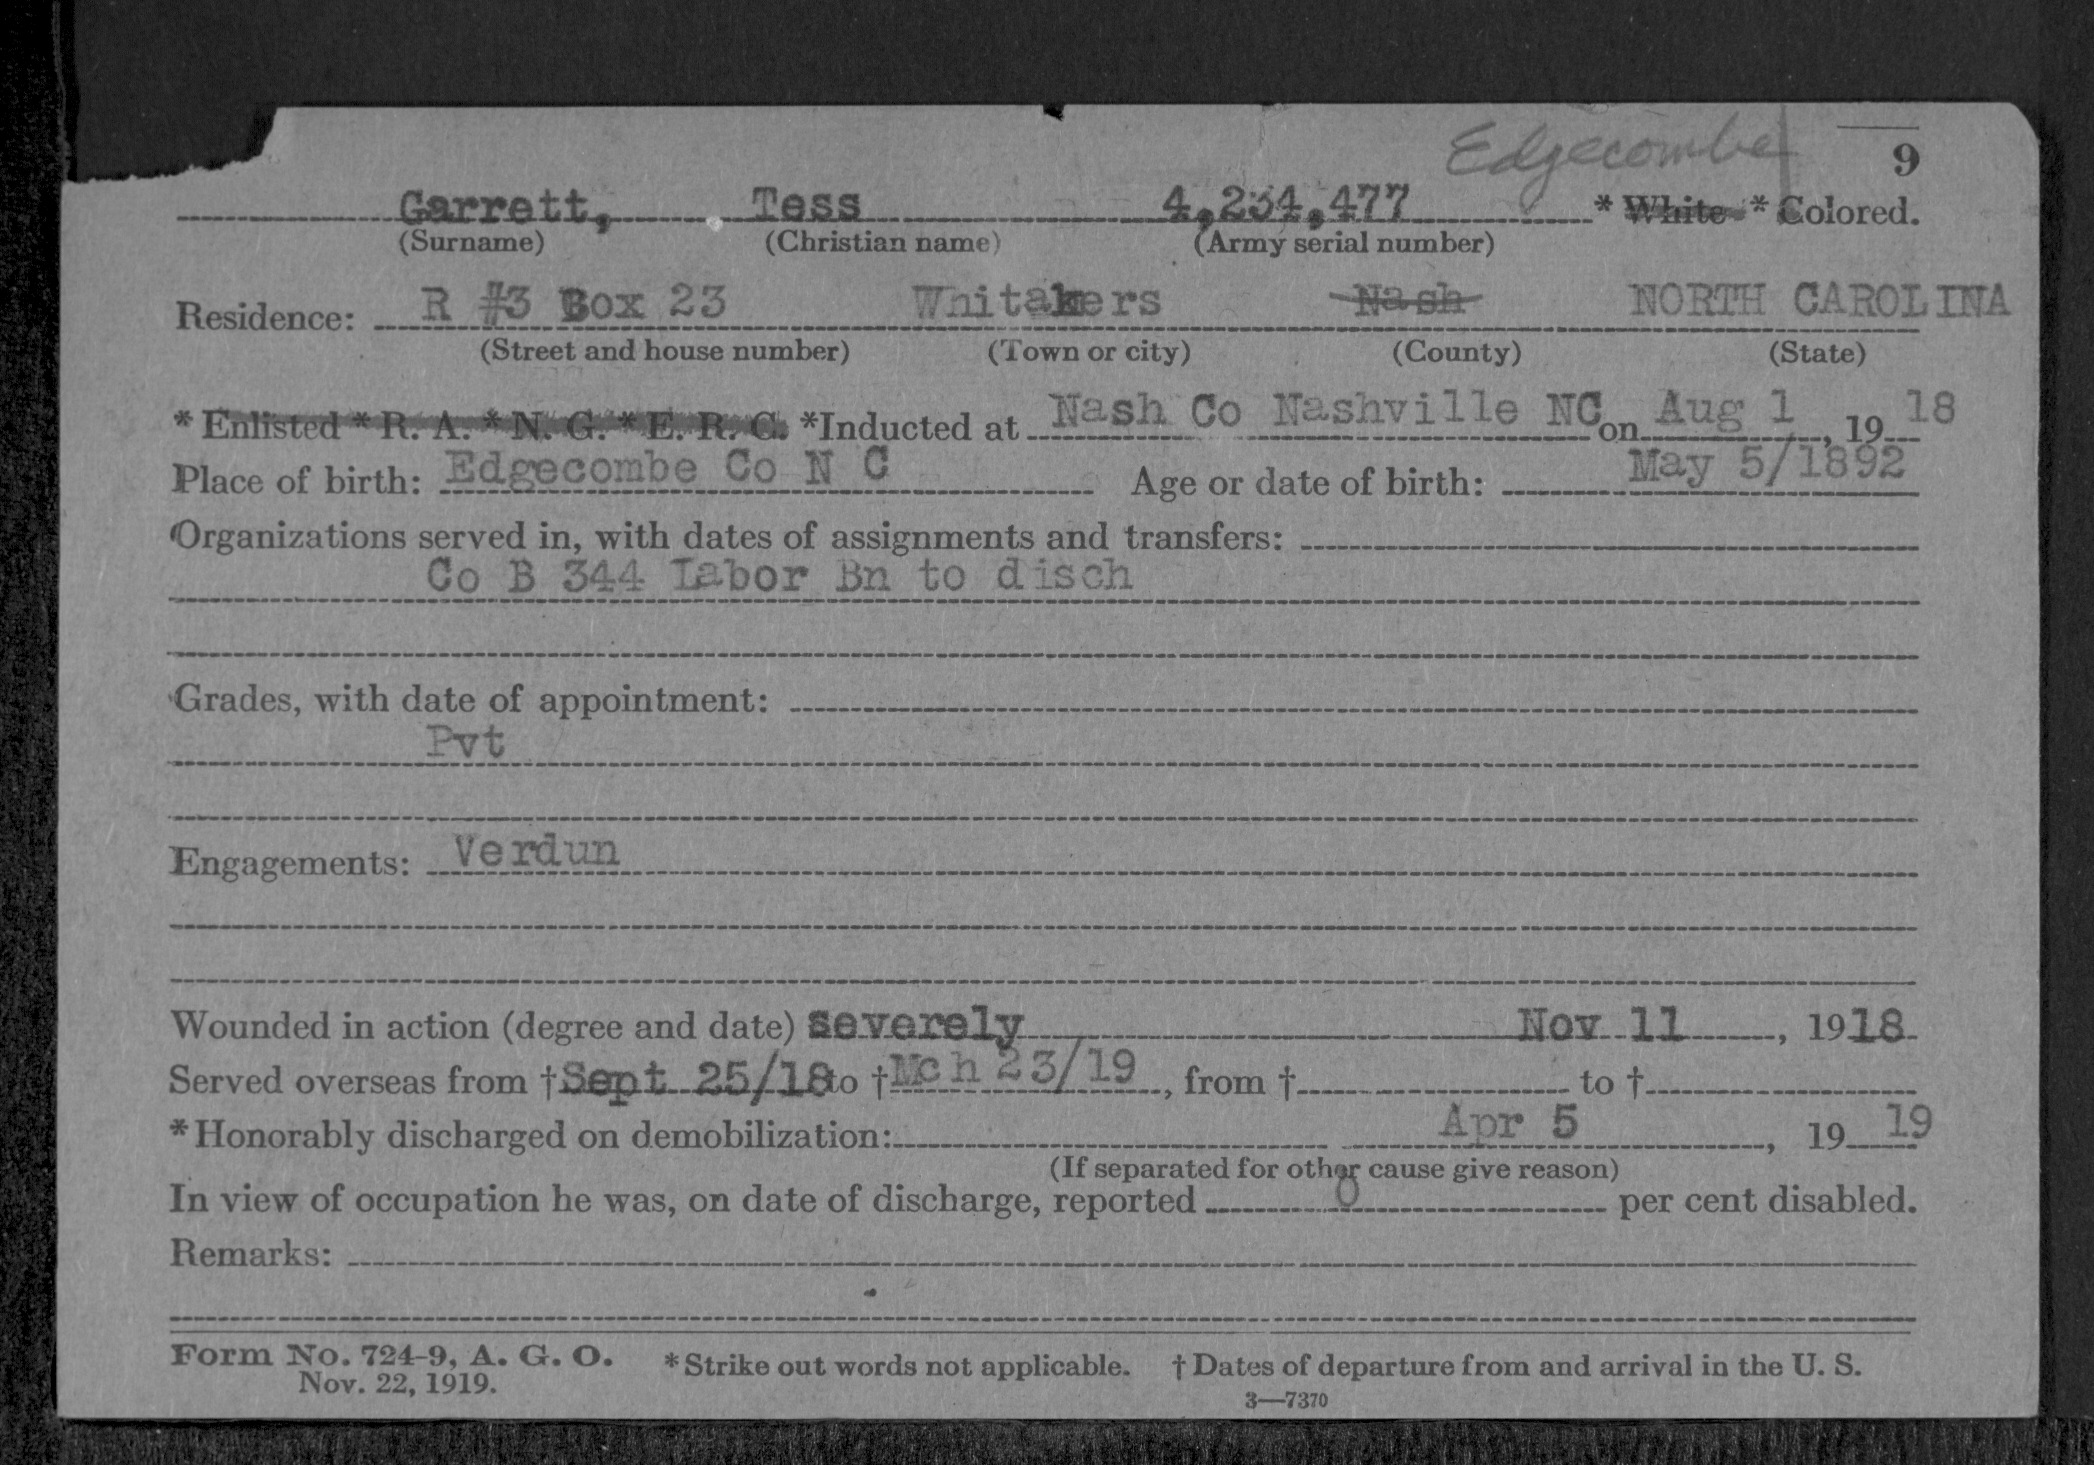 Edgecombe
9
Garrett, Tess 4,234,477 * White * Colored.
(Surname) (Christian name) (Army serial number)
Residence: R #3 Box 23 Whitakers Nash NORTH CAROLINA
(Street and house number) (Town or city) (County) (State)
* Enlisted * R. A. * N. G. * E. R. C. *Inducted at Nash Co Nashville NC on Aug 1, 1918
Place of birth: Edgecombe Co N C Age or date of birth: May 5/1892
Organizations served in, with dates of assignments and transfers:
Co B 344 Labor Bn to disch
Grades, with date of appointment:
Pvt
Engagements: Verdun
Wounded in action (degree and date) severely Nov 11, 1918
Served overseas from †Sept 25/18 to †Mch 23/19, from † to †
* Honorably discharged on demobilization: Apr 5, 1919
(If separated for other cause give reason)
In view of occupation he was, on date of discharge, reported 0 per cent disabled.
Remarks:
Form No. 724-9, A. G. O. * Strike out words not applicable. † Dates of departure from and arrival in the U. S.
Nov. 22, 1919.
3—7370